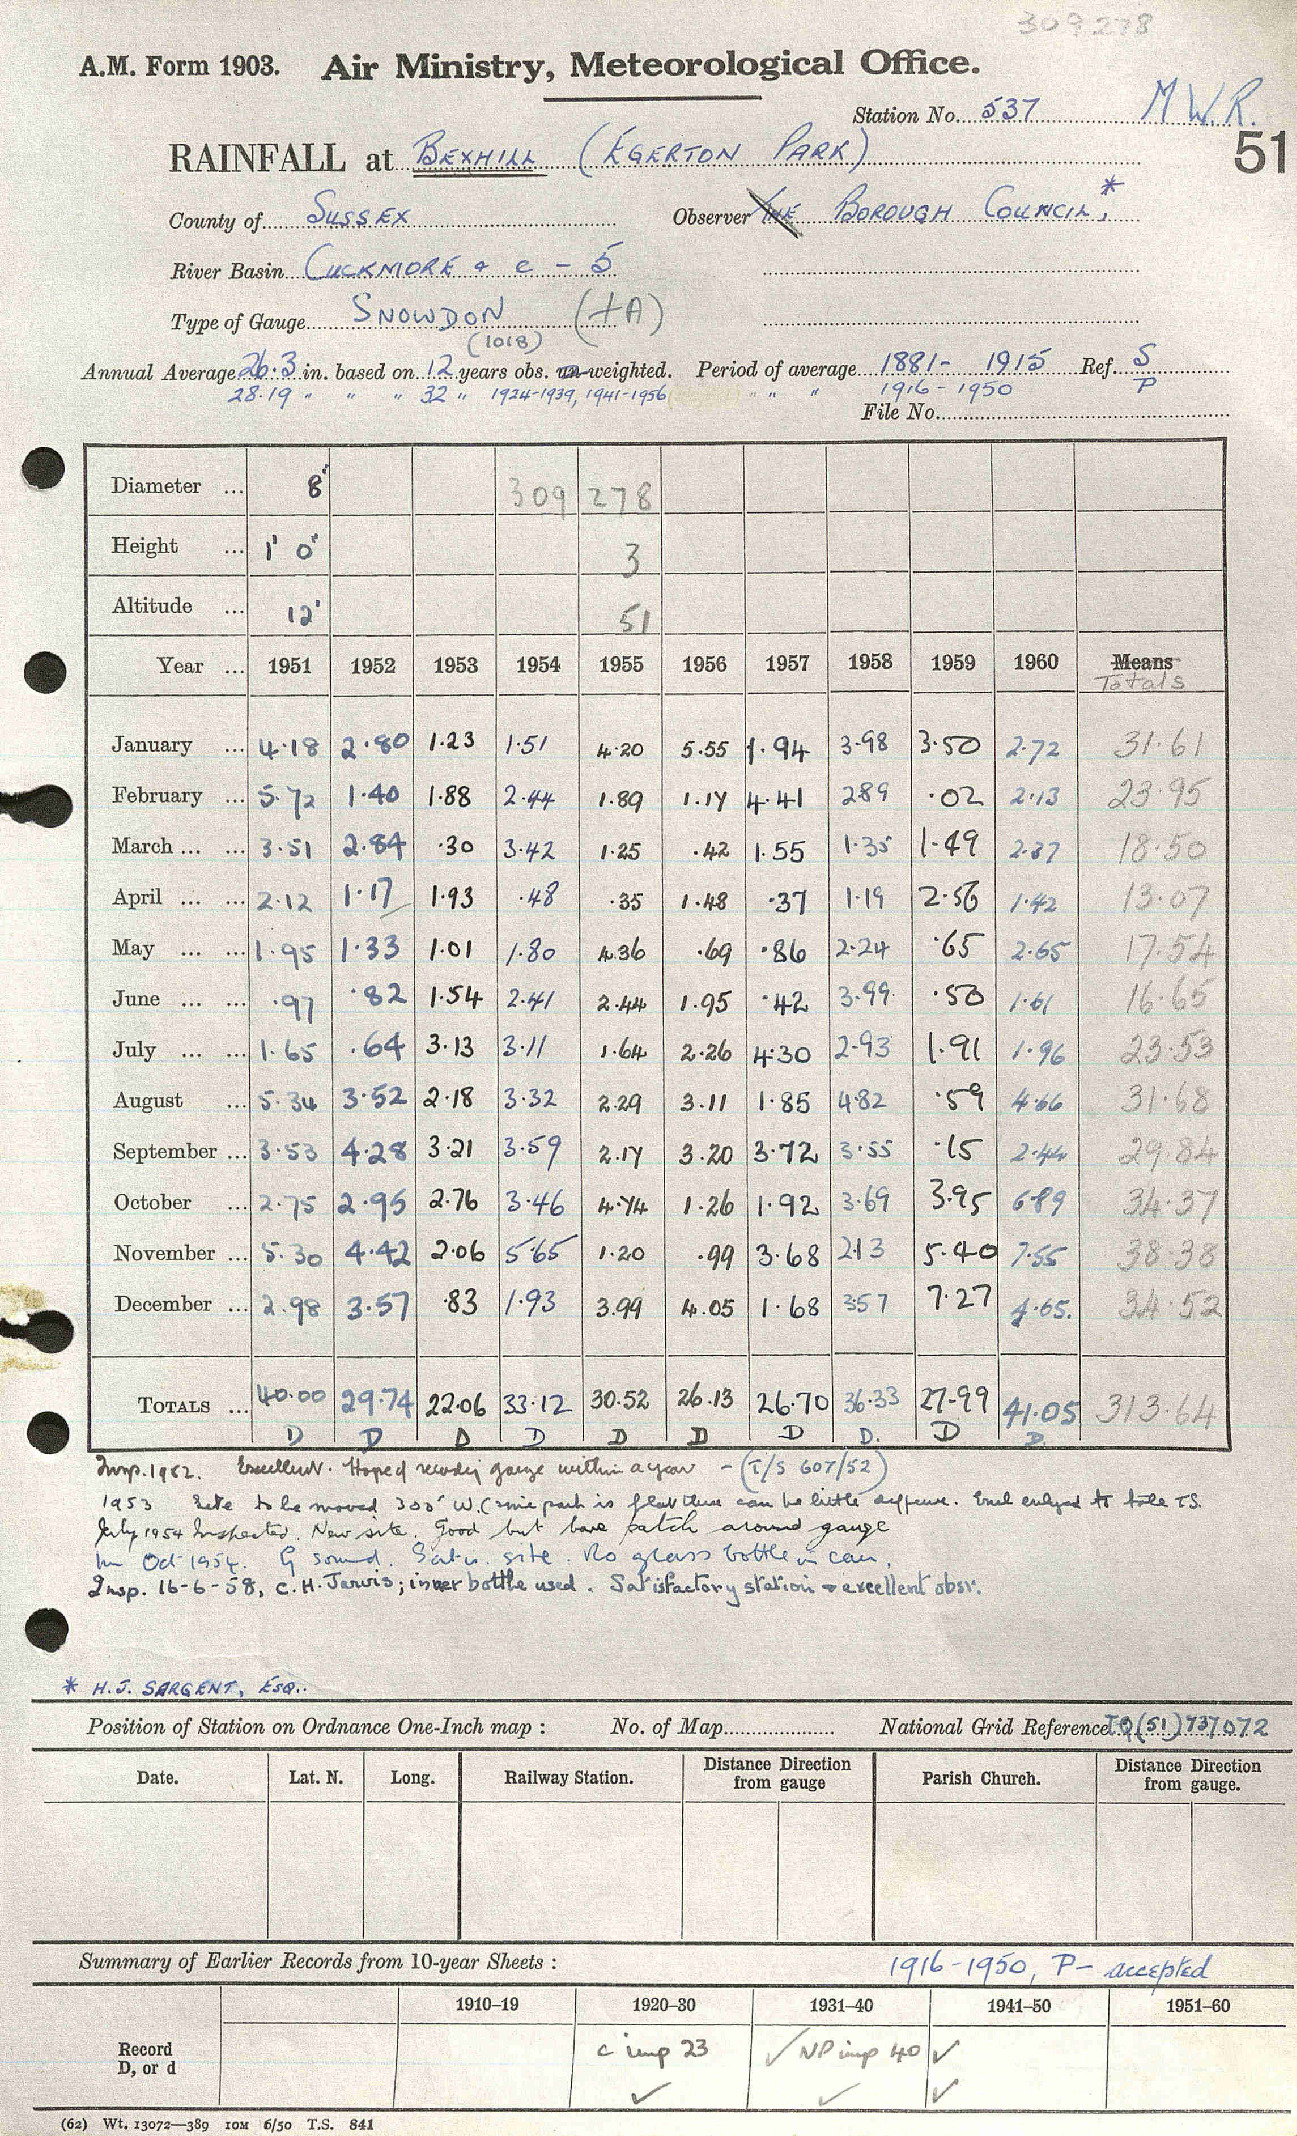 309278
A.M. Form 1903. Air Ministry, Meteorological Office.
Station No. 537 M.W.R.
51
RAINFALL at BEXHILL (EGERTON PARK)
County of SUSSEX Observer THE BOROUGH COUNCIL, *
River Basin CUCKMORE & c - 5
Type of Gauge SNOWDON (+A)
(1018)
Annual Average 26.3 in. based on 12 years obs. un-weighted. Period of average 1881 - 1915 Ref. S
28.19 " " " 32 " 1924-1939, 1941-1956 " " " 1916 - 1950 P
File No.
Diameter ... 8" 309 278
Height ... 1' 0" 3
Altitude ... 12' 51
Year ... 1951 1952 1953 1954 1955 1956 1957 1958 1959 1960 Means
Totals
January ... 4.18 2.80 1.23 1.51 4.20 5.55 1.94 3.98 3.50 2.72 31.61
February ... 5.72 1.40 1.88 2.44 1.89 1.14 4.41 2.89 .02 2.13 23.95
March ... ... 3.51 2.84 .30 3.42 1.25 .42 1.55 1.35 1.49 2.37 18.50
April ... ... 2.12 1.17 1.93 .48 .35 1.48 .37 1.19 2.56 1.42 13.07
May ... ... 1.95 1.33 1.01 1.80 4.36 .69 .86 2.24 .65 2.65 17.54
June ... ... .97 .82 1.54 2.41 2.44 1.95 .42 3.99 .50 1.61 16.65
July ... ... 1.65 .64 3.13 3.11 1.64 2.26 4.30 2.93 1.91 1.96 23.53
August ... 5.34 3.52 2.18 3.32 2.29 3.11 1.85 4.82 .59 4.66 31.68
September ... 3.53 4.28 3.21 3.59 2.17 3.20 3.72 3.55 .15 2.44 29.84
October ... 2.75 2.95 2.76 3.46 4.74 1.26 1.92 3.69 3.95 6.89 34.37
November ... 5.30 4.42 2.06 5.65 1.20 .99 3.68 2.13 5.40 7.55 38.38
December ... 2.98 3.57 .83 1.93 3.99 4.05 1.68 3.57 7.27 4.65. 34.52
TOTALS ... 40.00 29.74 22.06 33.12 30.52 26.13 26.70 36.33 27.99 41.05 313.64
D D D D D D D D. D D.
Insp. 1952. Excellent. Hope of recording gauge within a year - (T/S 607/52)
1953 Site to be moved 300' W. (since park is flat there can be little difference.
July 1954 Inspected. New site. Good but bare patch around gauge
In Oct 1954. G sound. Satis. site. No glass bottle in can.
Insp. 16-6-58, C.H. Jarvis; inner bottle used. Satisfactory station & excellent obsr.
* H.J. SARGENT, ESQ..
Position of Station on Ordnance One-Inch map : No. of Map National Grid Reference TQ (51) 737072
Date. Lat. N. Long. Railway Station. Distance Direction from gauge Parish Church. Distance Direction from gauge.
Summary of Earlier Records from 10-year Sheets : 1916 - 1950, P - accepted
1910–19 1920–30 1931–40 1941–50 1951–60
Record D, or d c imp 23 ✓ NP imp 40 ✓
✓ ✓ ✓
(62) Wt. 13072—389 10M 6/50 T.S. 841